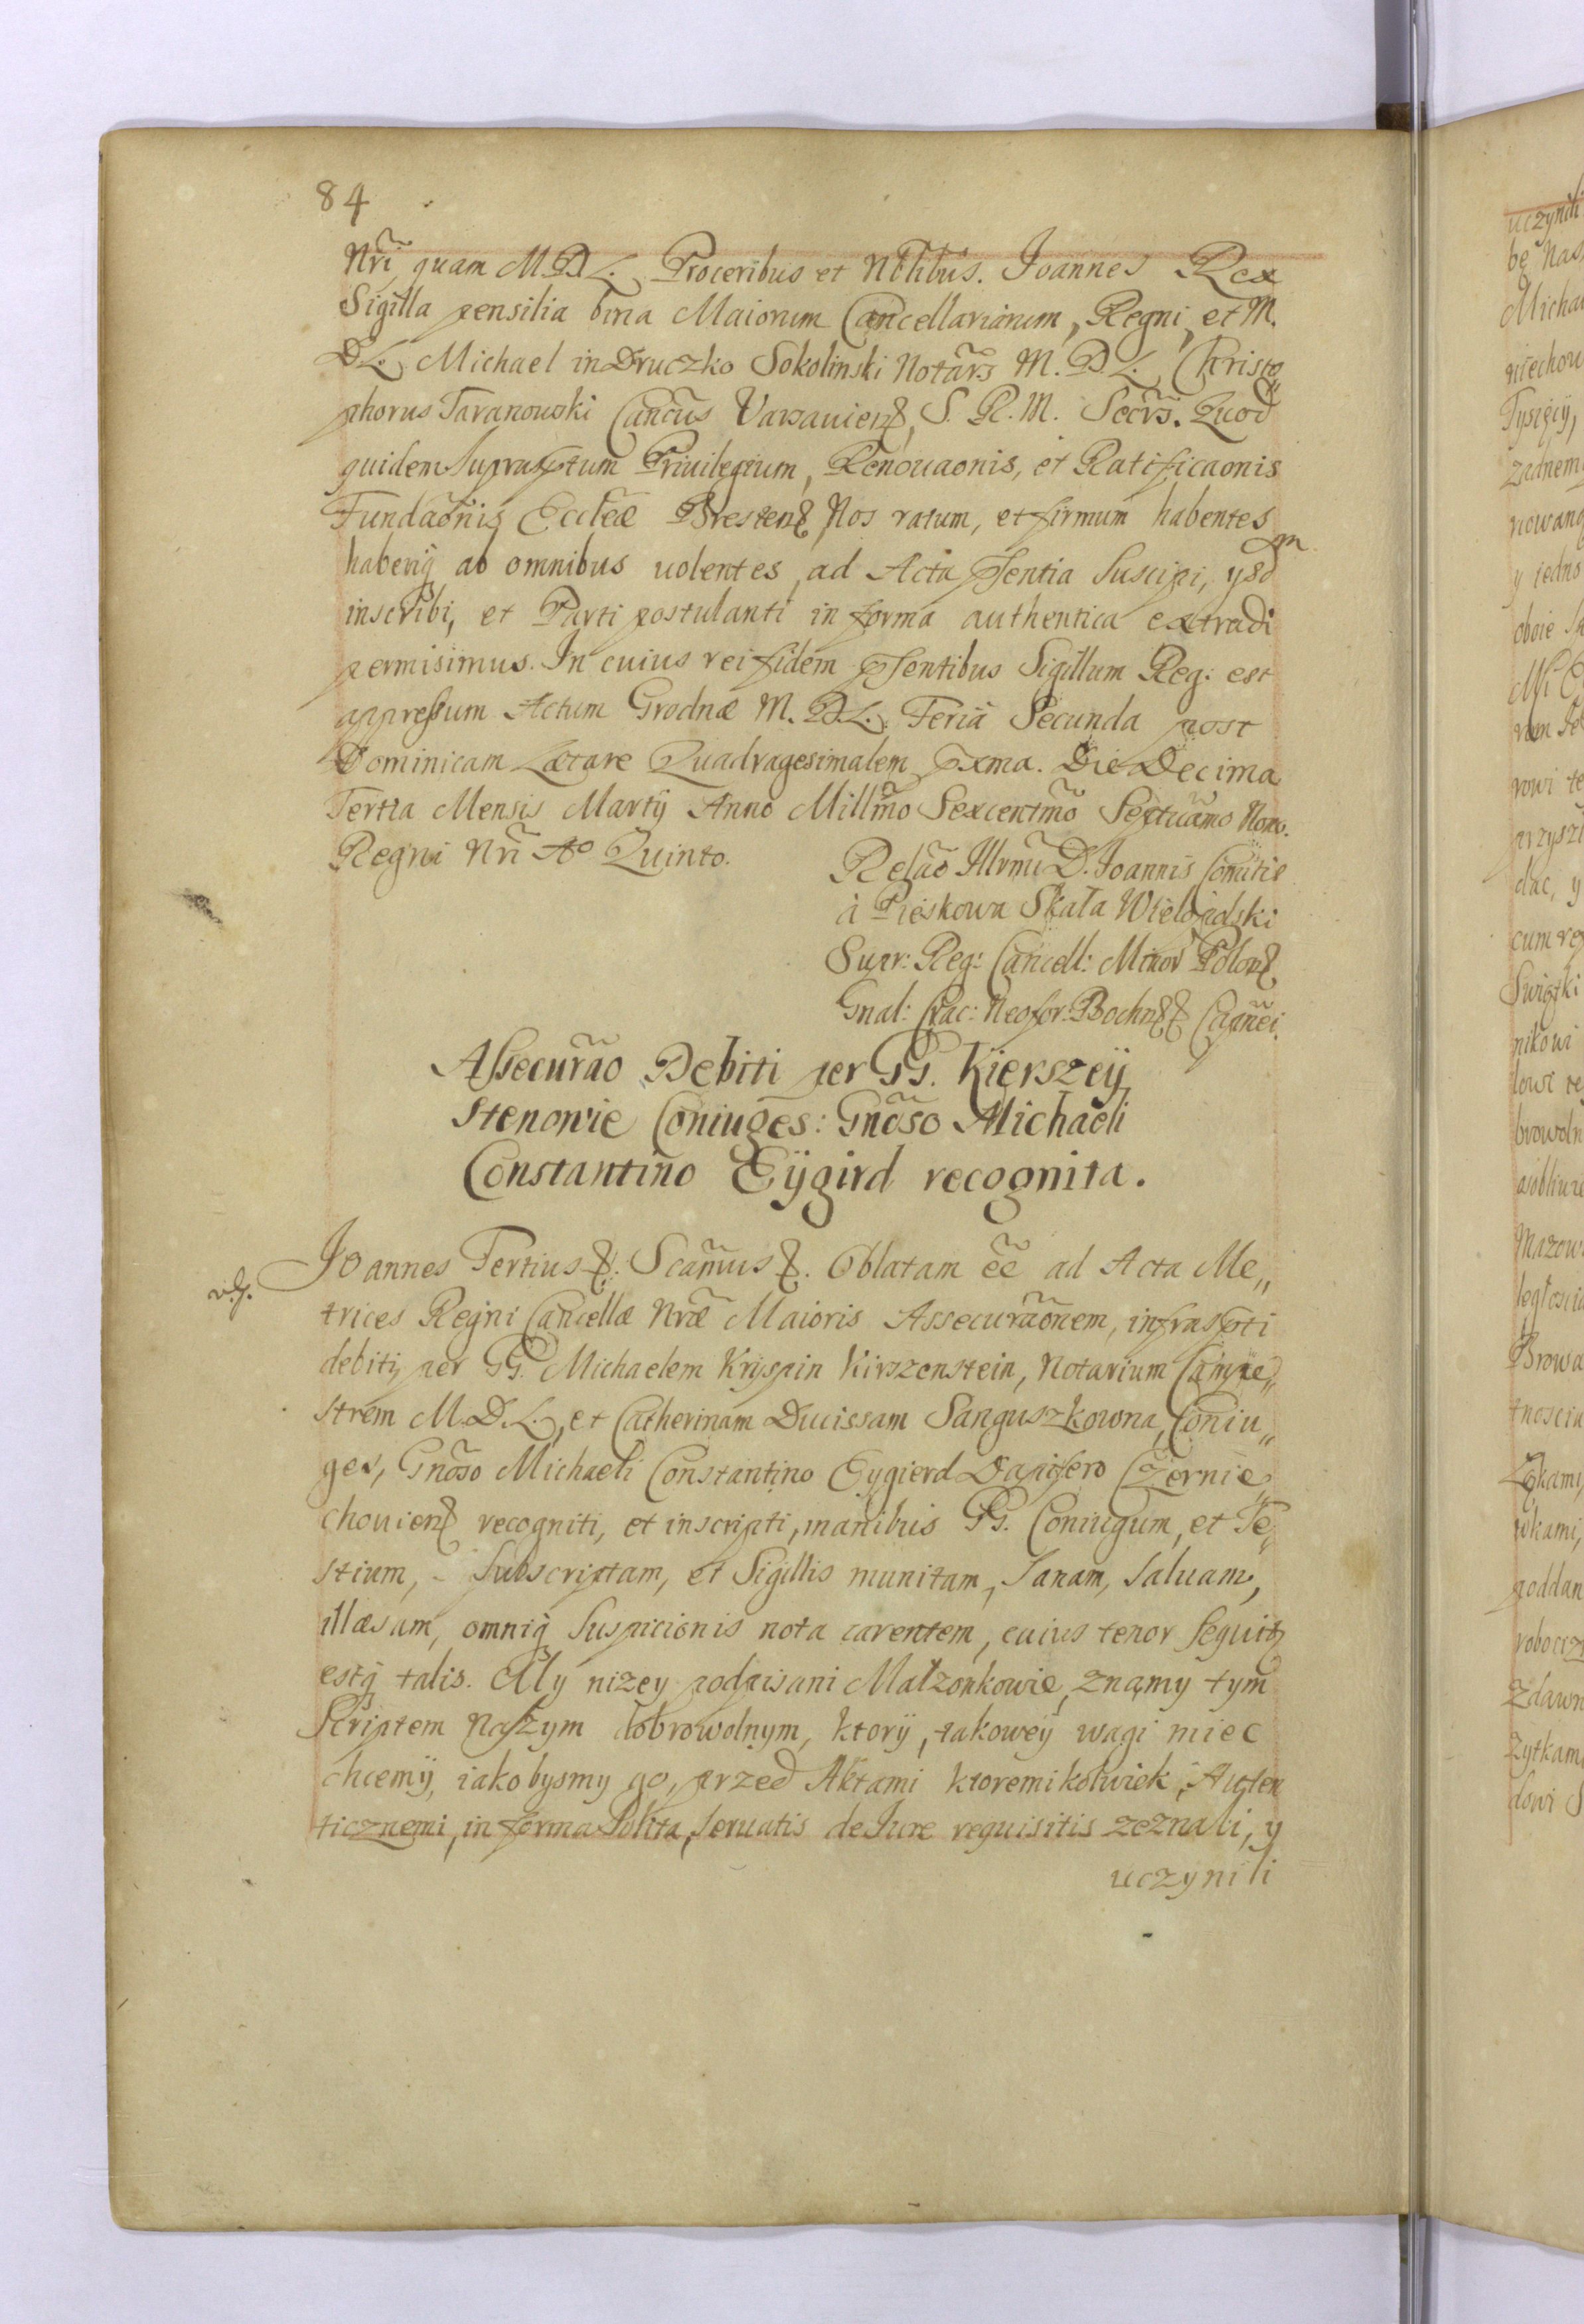 84
Nr̃i, quam M.D.L. Proceribus et Nõbilibus. Joannes Rex
Sigilla pensilia bina Maiorum Cancellariarum, Regni, et M.
D.L. Michael in Druczko Sokolinski Notãrs M.D.L. Christo„
phorus Taranowski Cancũs Varsauien, S.R.M. Secr̃s. Quod
quidem Suprasptum Priuilegium, Renouaonis, et Ratificaonis
Fundaõnis Eccleæ Bresten Nos ratum, et firmum habentes
haberiq ab omnibus uolentes, ad Acta pSentia Suscipi, ysdm
inscribi, et Parti postulanti in forma authentica extradi
permisimus. In cuius rei fidem pSentibus Sigillum Reg: est
appressum Actum Grodnæ M.D.L. Feria Secunda post
Dominicam Lætare Quadragesimalem pxma. Die Decima
Tertia Mensis Martij Anno Millm̃o Sexcentmõ Septuãmo Nono.
Regni Nr̃i Ao Quinto.
Relaõ Illrmi D. Joannis Comitis
à Pieskowa Skała Wielopolski
Supr: Reg: Cancell: Minor Polon
Gnal: Crac: Neofor: Bochn Capñei.
Assecurão Debiti per GG. Kierszey
stenowie Coniuges: Gnõso Michaeli
Constantino Eÿgird recognita.
Joannes Tertius. Scamũs. Oblatam eẽ ad Acta Me„
trices Regni Cancellæ Nræ Maioris Assecuraõnem, infraspti
debiti, per GG. Michaelem Kryspin Kirszenstein, Notarium Campe„
strem M.D.L., et Catherinam Ducissam Sanguszkowna, Coniu„
ges, Gnõso Michaeli Constantino Eygierd Dapifero Czernie„
chouien recogniti, et inscripti, manibus GG. Coniugum, et Te„
stium, Subscriptam, et Sigillis munitam, Sanam, Saluam,
illæsam, omniq Suspicionis nota carentem, cuius tenor Sequit
estq talis. My nizey podpisani Małzonkowie, znamy tym
Scriptem Naszym dobrowolnym, ktorÿ, takoweÿ wagi miec
chcemÿ, iakobysmy go, przed Aktami ktoremikolwiek, Auten
ticznemi, in forma Solita, Seruatis de Jure requisitis zeznali, y
uczynili